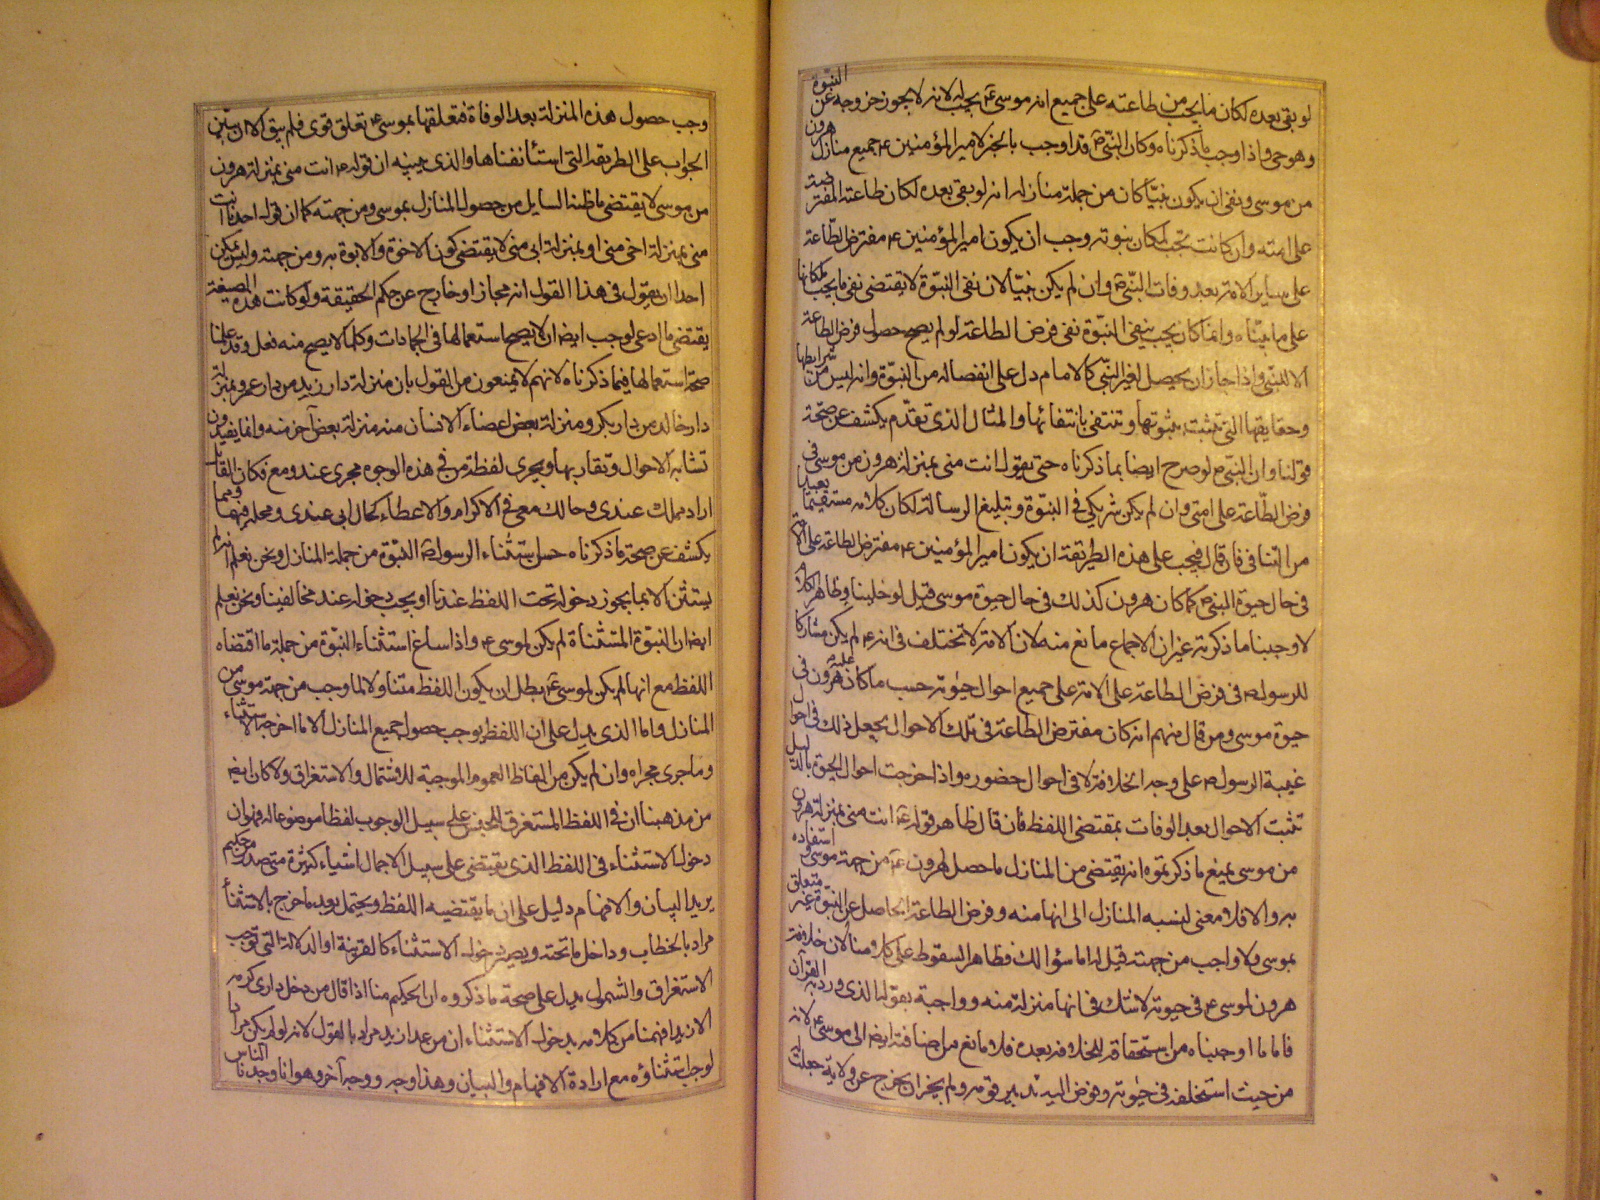 لو بقى بعده لكان ما يجب من طاعته على جميع امة موسى ع يجب له لانه لا يجوز خروجه عن النبوة
وهو حى واذا وجب ما ذكرناه وكان النبى ص قد اوجب بالخبر لامير المؤمنين ع جميع منازل هرون
من موسى ونفى ان يكون نبيا كان من جملة منازله انه لو بقى بعده لكان طاعته المفترضة
على امته وان كانت تجب لمكان نبوته وجب ان يكون امير المؤمنين ع مفترض الطاعة
على ساير الامة بعد وفات النبى ص وان لم يكن نبيا لان نفى النبوة لا يقتضى نفى ما يجب لمكانها
على ما بيناه وانما كان يجب بنفى النبوة نفى فرض الطاعة لو لم يصح حصول فرض الطاعة
الا للنبى واذا جاز ان يحصل لغير النبى كالامام دل على انفصاله من النبوة وانه ليس من شرايطها
وحقايقها التى تثبت بثبوتها وتنتفى بانتفائها والمثال الذى تقدم يكشف عن صحة
قولنا وان النبى ص لو صرح ايضا بما ذكرناه حتى يقول انت منى بمنزلة هرون من موسى فى
فرض الطاعة على امتى وان لم يكن شريكى فى النبوة وتبليغ الرسالة لكان كلامه مستقيما بعيدا
من التنافى فان قال فيجب على هذه الطريقة ان يكون امير المؤمنين ع مفترض الطاعة على الامة
فى حال حيوة النبى ص كما كان هرون كذلك فى حال حيوة موسى قيل لو خلينا وظاهر الكلام
لاوجبنا ما ذكرته غير ان الاجماع مانع منه لان الامة لا تختلف فى انه ع لم يكن مشاركا
للرسول ص فى فرض الطاعة على الامة على جميع احوال حيوته حسب ما كان عليه هرون فى
حيوة موسى ومن قال منهم انه كان مفترض الطاعة فى تلك الاحوال يجعل ذلك فى احوال
غيبة الرسول ص على وجه الخلافة لا فى احوال حضوره واذا خرجت احوال الحيوة بالدليل
تثبت الاحوال بعد الوفات بمقتضى اللفظ فان قال ظاهر قوله ع انت منى بمنزلة هرون
من موسى يمنع ما ذكرتموه انه يقتضى من المنازل ما حصل لهرون ع من جهة موسى واستفاده
به والا فلا معنى لنسبه المنازل الى انها منه وفرض الطاعة الحاصل عن النبوة غير متعلق
بموسى ولا واجب من جهته قيل له اما سؤالك فظاهر السقوط على كلامنا لان خلافة
هرون لموسى ع فى حيوته لا شك فى انها منزلة منه وواجبة بقوله الذى ورد به القرآن
فاما ما اوجبناه من استحقاقه للخلافة بعده فلا مانع من اضافته ايضا الى موسى ع لانه
من حيث استخلفه فى حيوته وفوض اليه تدبير قومه ولم يجز ان يخرج عن ولاية جعلت له
وجب حصول هذه المنزلة بعد الوفاة فتعلقها بموسى ع تعلق قوى فلم يبق الا ان نبين
الجواب على الطريقة التى استأنفناها والذى يبينه ان قوله ع انت منى بمنزلة هرون
من موسى لا يقتضى ما ظنه السايل من حصول المنازل بموسى ومن جهته كما ان قول احدنا انت
منى بمنزلة اخى منى او بمنزلة ابى منى لا يقتضى كون الاخوة والابوة به ومن جهته وليس يمكن
احدا ان يقول فى هذا القول انه مجاز او خارج عن حكم الحقيقة ولو كانت هذه الصيغة
يقتضى ما ادعى لوجب ايضا ان لا يصح استعمالها فى الجمادات وكلما لا يصح منه فعل وقد علمنا
صحة استعمالها فيما ذكرناه لانهم لا يمنعون من القول بان منزلة دار زيد من دار عمرو بمنزلة
دار خالد من دار بكر ومنزلة بعض اعضاء الانسان منه منزلة بعض آخر منه وانما يفيدون
تشابه الاحوال وتقاربها ويجرى لفظة من فى هذه الوجوه مجرى عند ومع فكان القائل
اراد محلك عندى وحالك معى فى الاكرام والاعطاء كحال ابى عندى ومحله فيهما ومما
يكشف عن صحة ما ذكرناه حسن استثناء الرسول ص النبوة من جملة المنازل ونحن نعلم انه لم
يستثن الا ما يجوز دخوله تحت اللفظ عندنا او يجب دخوله عند مخالفينا ونحن نعلم
ايضا ان النبوة المستثناة لم يكن لموسى ع واذا ساغ استثناء النبوة من جملة ما اقتضاه
اللفظ مع انها لم يكن لموسى ع بطل ان يكون اللفظ متناولا لما وجب من جهة موسى من
المنازل واما الذى يدل على ان اللفظ يوجب حصول جميع المنازل الا ما اخرجه الاستثناء
وما جرى مجراه وان لم يكن من الفاظ العموم الموجبة للاشتمال والاستغراق ولا كان ايضا
من مذهبنا ان فى اللفظ المستغرق للجنس على سبيل الوجوب لفظا موضوعا له فهو ان
دخول الاستثناء فى اللفظ الذى يقتضى على سبيل الاجمال اشياء كثيرة متى صدر من حكيم
يريد البيان والافهام دليل على ان ما يقتضيه اللفظ ويحتمله بعد ما خرج بالاستثناء
مراد بالخطاب وداخل ما تحته ويصير دخول الاستثناء كالقرينة او الدلالة التى توجب
الاستغراق والشمول يدل على صحة ما ذكروه ان الحكيم منا اذا قال من دخل دارى اكرمه
الا زيدا فهمنا من كلامه بدخول الاستثناء ان من عدا زيد مراد بالقول لانه لو لم يكن مرادا
لوجب استثناؤه مع ارادة الافهام والبيان وهذا وجه ووجه آخر وهو انا وجدنا الناس